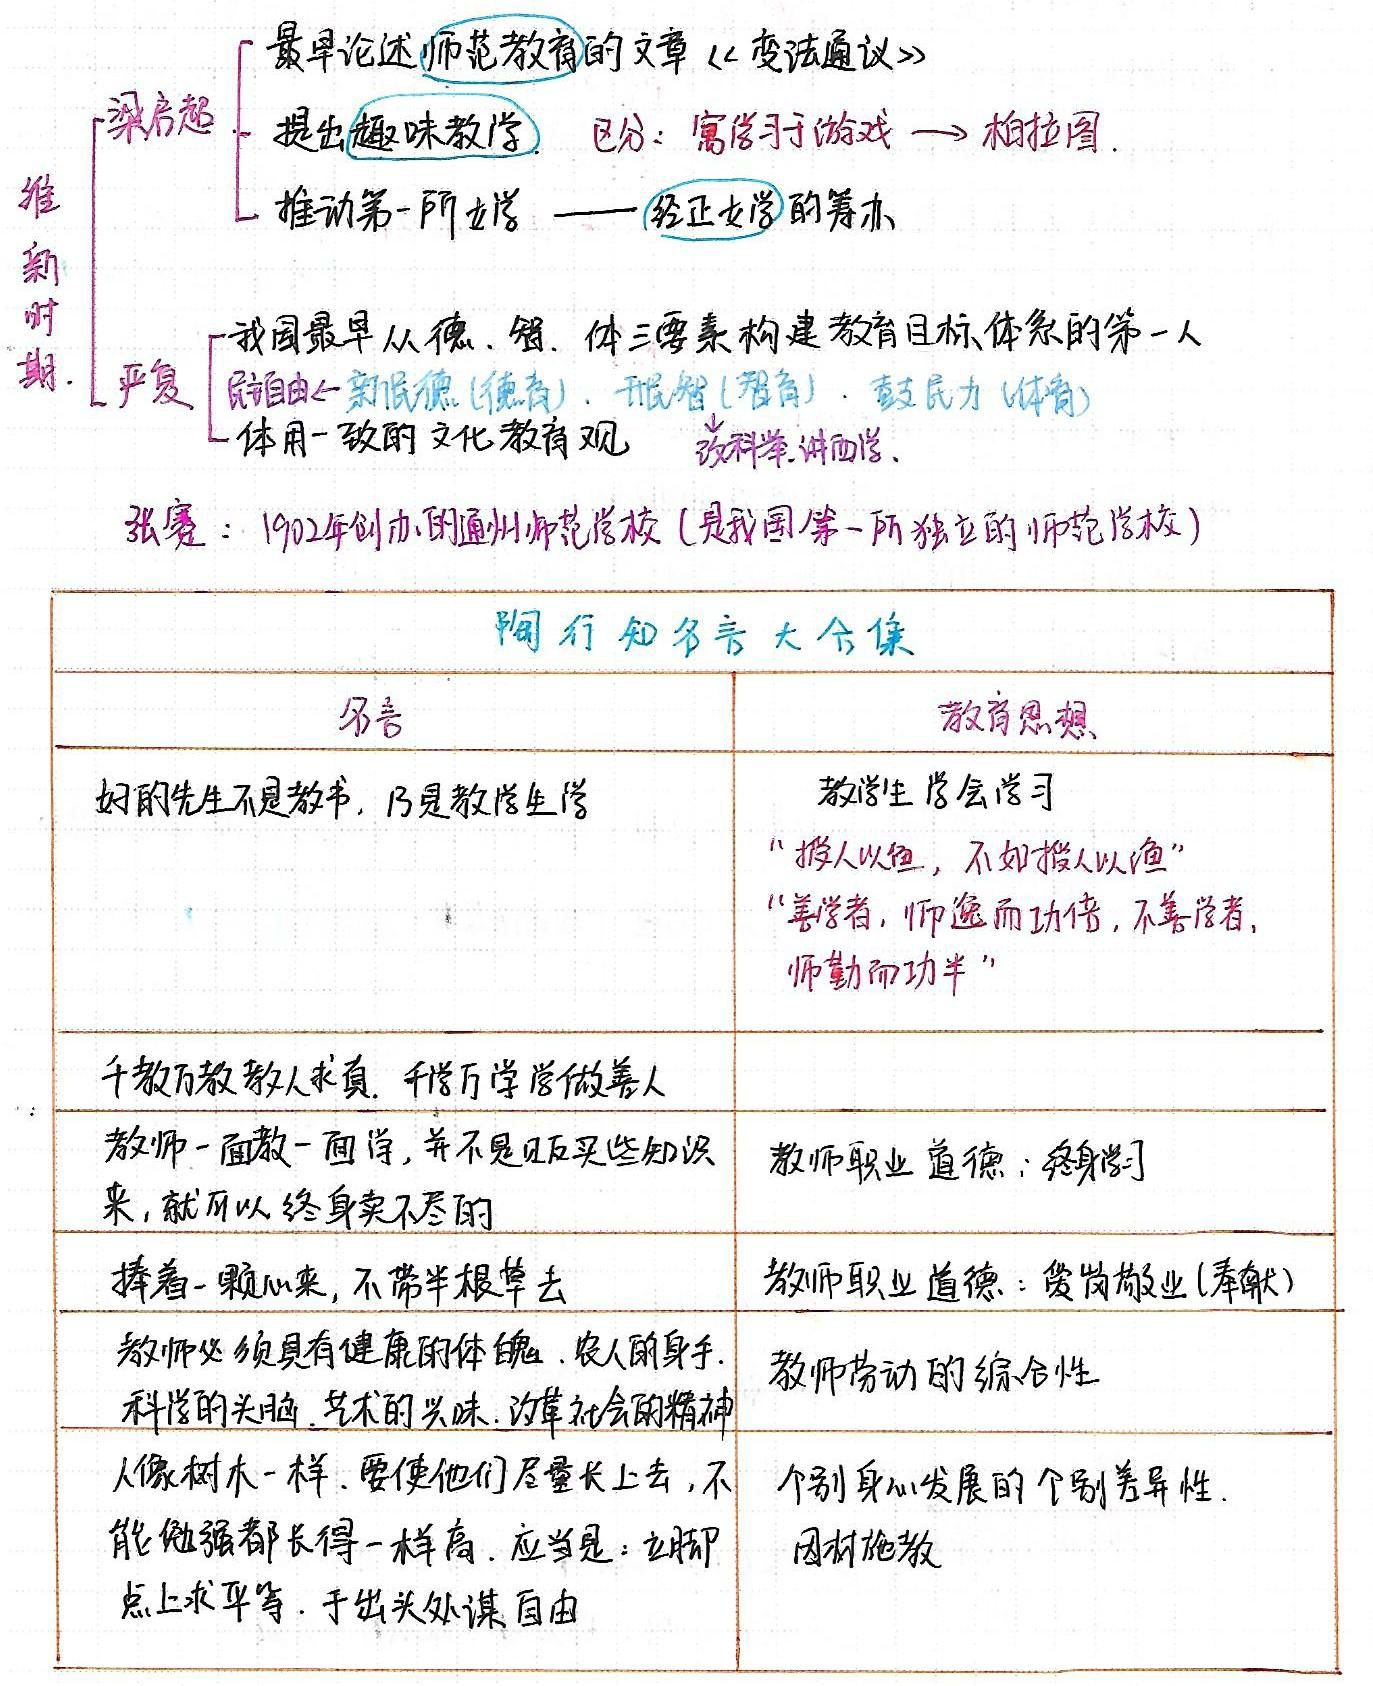 维新时期.
梁启超
最早论述师范教育的文章《变法通议》
提出趣味教学. 区分：寓学习于游戏 → 柏拉图.
推动第一所女学 —— 经正女学的筹办
严复
我国最早从德、智、体三要素构建教育目标体系的第一人
民主自由← 新民德(德育)、开民智(智育)、鼓民力(体育)
↓
体用一致的文化教育观 改科举.讲西学、
张謇：1902年创办的通州师范学校(是我国第一所独立的师范学校)
陶行知名言大合集
名言 教育思想
好的先生不是教书，乃是教学生学 教学生学会学习
“授人以鱼，不如授人以渔”
“善学者，师逸而功倍，不善学者，
师勤而功半”
千教万教教人求真. 千学万学学做善人
教师一面教一面学，并不是贩买些知识 教师职业道德：终身学习
来，就可以终身卖不尽的
捧着一颗心来，不带半根草去 教师职业道德：爱岗敬业(奉献)
教师必须具有健康的体魄、农人的身手、 教师劳动的综合性
科学的头脑、艺术的兴味、改革社会的精神
人像树木一样、要使他们尽量长上去，不 个别身心发展的个别差异性.
能勉强都长得一样高、应当是：立脚 因材施教
点上求平等、于出头处谋自由